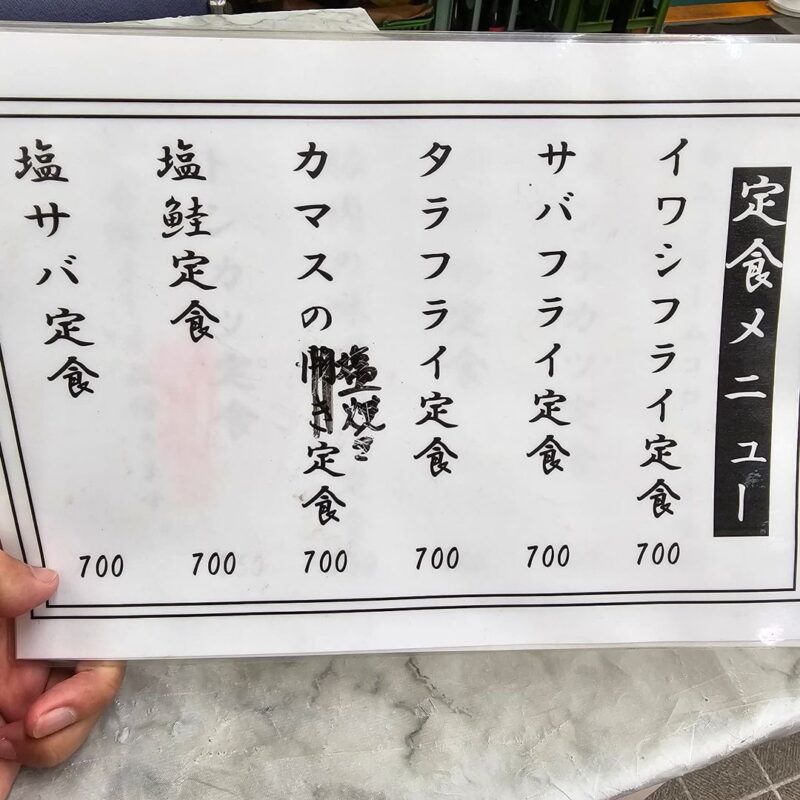 定食メニュー
イワシフライ定食
700
サバフライ定食
700
タラフライ定食
700
カマスの開き定食
塩焼き
700
塩鮭定食
700
塩サバ定食
700